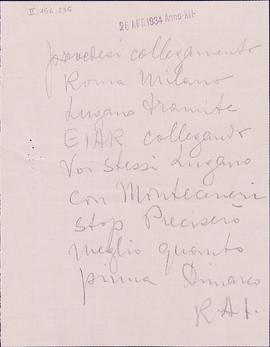 II. 156. 236
26 APR 1934 Anno XII
prevedesi collegamento
Roma Milano
Lugano tramite
EIAR collegando
Voi stessi Lugano
con Monteceneri
stop Preciserò
meglio quanto
prima Dimarco